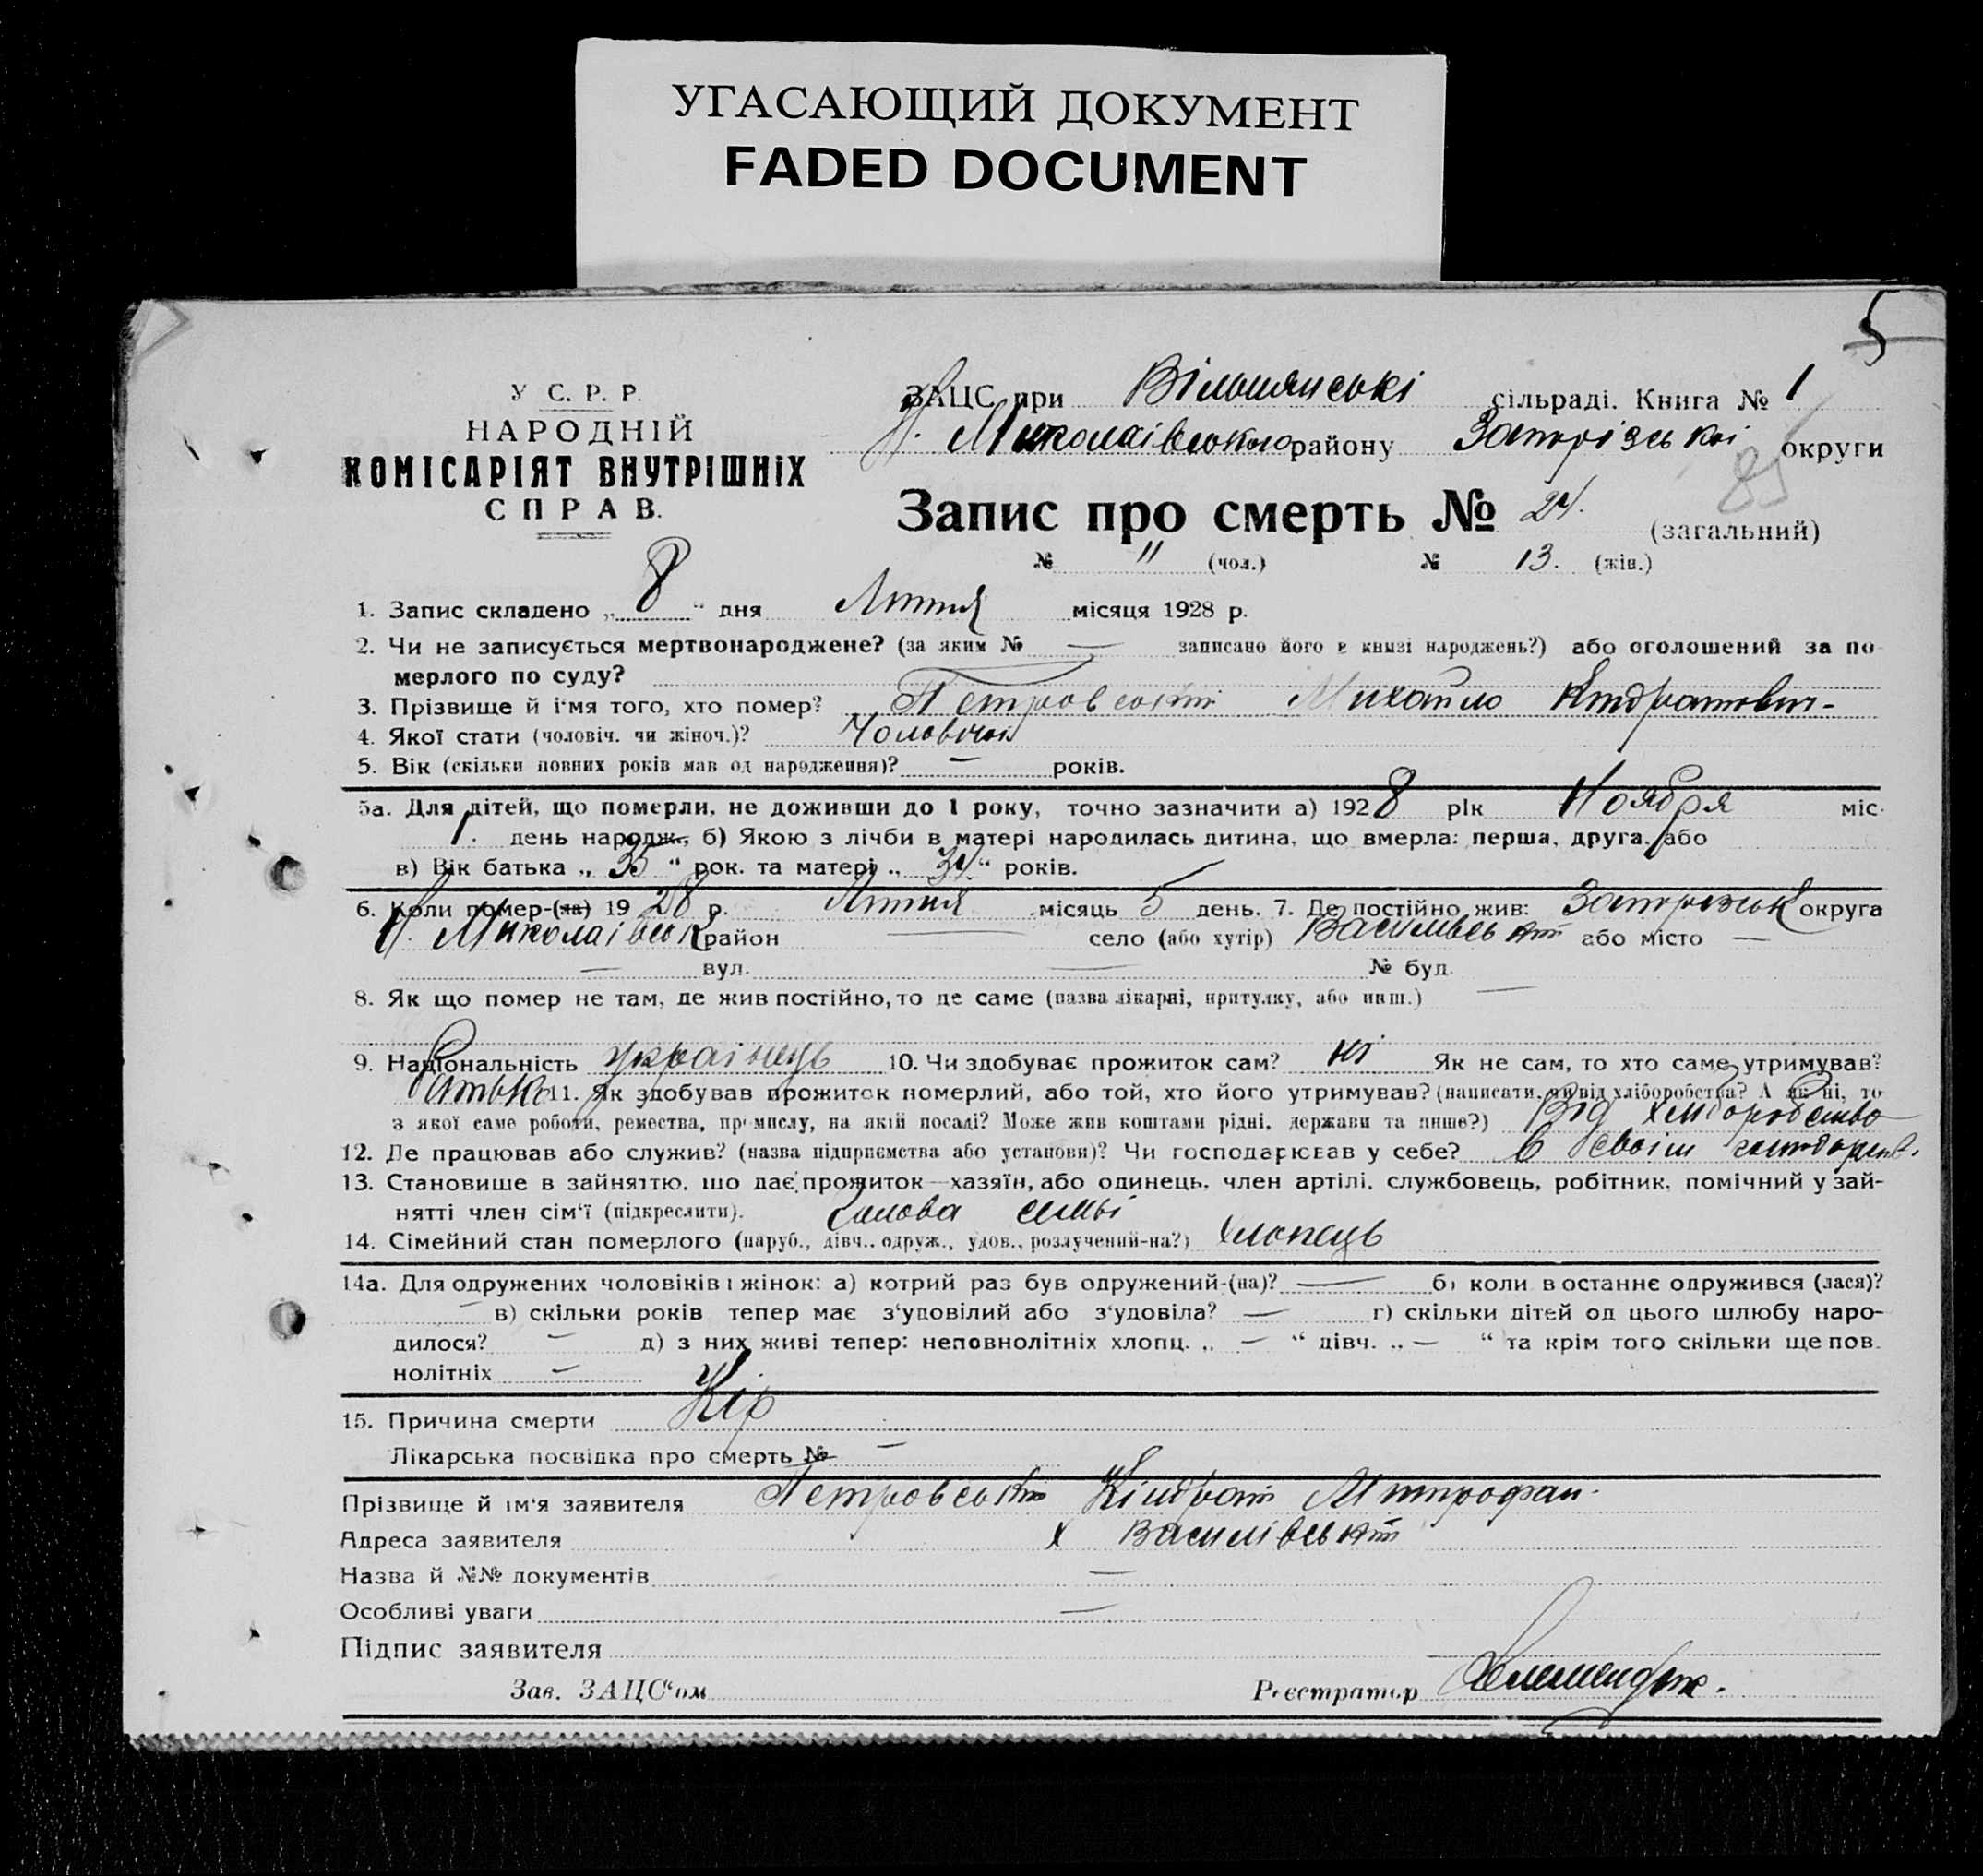 УГАСАЮЩИЙ ДОКУМЕНТ
FADED DOCUMENT
5
У С. Р. Р.
НАРОДНІЙ
КОМІСАРІЯТ ВНУТРІШНІХ
СПРАВ.
ЗАЦС при Вільшанські сільраді. Книга № 1
Н. Миколаївського району Запорізької округи
85
Запис про смерть № 24. (загальний)
№ 11 (чол.) № 13. (жін.)
1. Запис складено „ 8 " дня Липня місяця 1928 р.
2. Чи не записується мертвонароджене? (за яким № — записано його в книзі народжень?) або оголошений за по-
мерлого по суду?
3. Прізвище й ім'я того, хто помер? Петровський Михайло Кіндратович
4. Якої стати (чоловіч. чи жіноч.)? Чоловічої
5. Вік (скільки повних років мав од народження)? — років.
5а. Для дітей, що померли, не доживши до 1 року, точно зазначити а) 1928 рік Ноября міс.
1. день народж., б) Якою з лічби в матері народилась дитина, що вмерла: перша, друга, або
в) Вік батька „ 35 " рок. та матері „ 34 " років.
6. Коли помер-(ла) 19 28 р. Липня місяць 5 день. 7. Де постійно жив: Запорізськ округа
Н. Миколаівськ район — село (або хутір) Василівський або місто —
— вул. — № буд.
8. Як що помер не там, де жив постійно, то де саме (назва лікарні, притулку, або инш.) —
9. Національність українець 10. Чи здобуває прожиток сам? ні Як не сам, то хто саме утримував?
батько 11. Як здобував прожиток померлий, або той, хто його утримував? (написати, чи від хліборобства? А як ні, то
з якої саме роботи, ремества, промислу, на якій посаді? Може жив коштами рідні, держави та инше?) Від хліборобство
12. Де працював або служив? (назва підприємства або установи)? Чи господарював у себе? В своїм господарст.
13. Становище в зайняттю, що дає прожиток—хазяїн, або одинець, член артілі, службовець, робітник, помічний у зай-
нятті член сім'ї (підкреслити). Голова семьі
14. Сімейний стан померлого (паруб., дівч., одруж., удов., розлучений-на?) хлопець
14а. Для одружених чоловіків і жінок: а) котрий раз був одружений-(на)? — б) коли в останнє одружився (лася)?
— в) скільки років тепер має з'удовілий або з'удовіла? — г) скільки дітей од цього шлюбу наро-
дилося? — д) з них живі тепер: неповнолітніх хлопц. „ — " дівч. „ — " та крім того скільки ще пов-
нолітніх —
15. Причина смерти Кір
Лікарська посвідка про смерть № —
Прізвище й ім'я заявителя Петровський Кіндрат Митрофан.
Адреса заявителя х Василівський
Назва й №№ документів —
Особливі уваги —
Підпис заявителя
Зав. ЗАЦС'ом Реєстратор